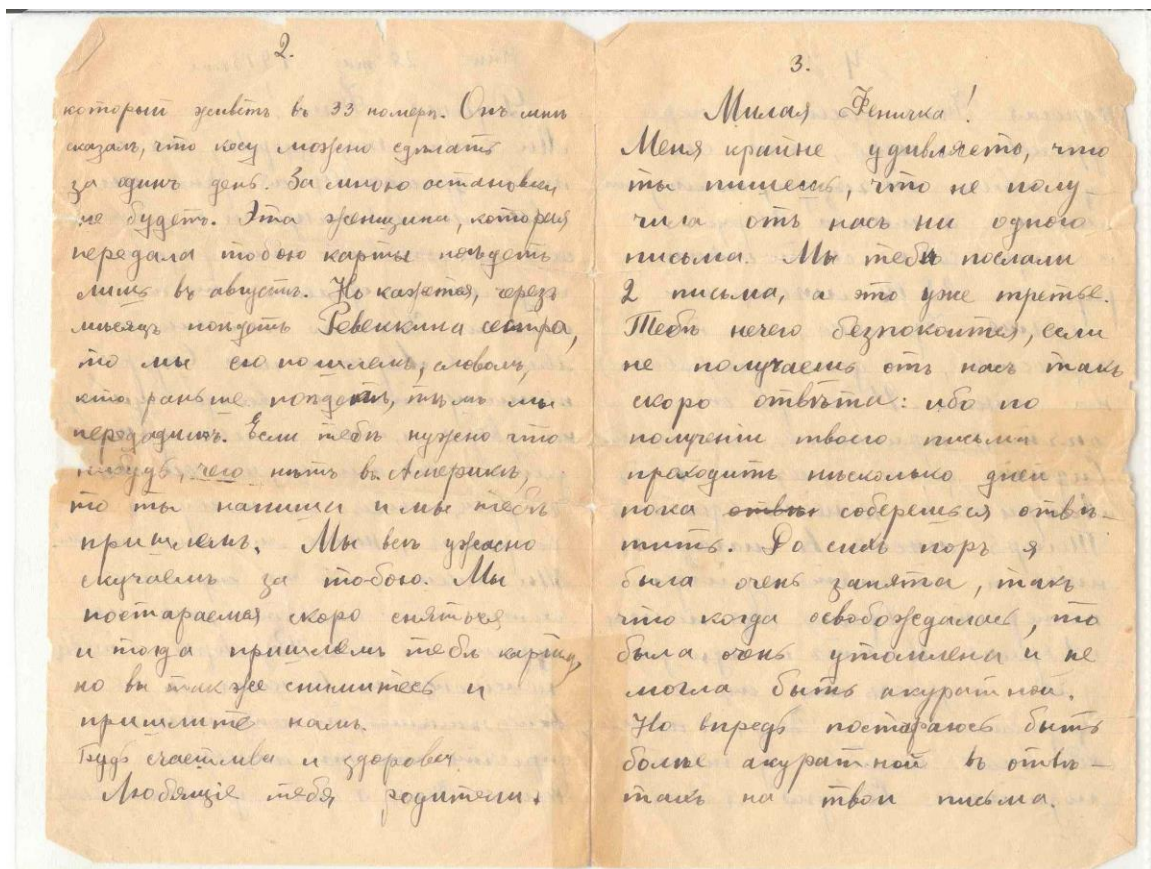 2.
который живетъ въ 33 номерѣ. Онъ мнѣ
сказалъ, что косу можно сдѣлать
за одинъ день. За мною остановки
не будетъ. Эта женщина, которая
передала тобою карты поѣдетъ
лишь въ августѣ. Но кажется, черезъ
мѣсяцъ поѣдетъ Ревеккина сестра,
то мы ею пошлемъ, словомъ,
кто раньше поѣдетъ, тѣмъ мы
передадимъ. Если тебѣ нужно что
нибудь, чего нѣтъ въ Америкѣ,
то ты напиши и мы тебѣ
пришлемъ. Мы всѣ ужасно
скучаемъ за тобою. Мы
постараемся скоро сняться
и тогда пришлемъ тебѣ карточку,
но вы также снимитесь и
пришлите намъ.
Будь счастлива и здорова
Любящіе тебя родители.
3.
Милая Феничка!
Меня крайне удивляетъ, что
ты пишешь, что не полу-
чила отъ насъ ни одного
письма. Мы тебѣ послали
2 письма, а это уже третье.
Тебѣ нечего безпокоится, если
не получаешь отъ насъ такъ
скоро отвѣта: ибо по
полученіи твоего письма
проходитъ нѣсколько дней
пока отвѣт соберешься отвѣ-
тить. До сихъ поръ я
была очень занята, такъ
что когда освобождалась, то
была очень утомлена и не
могла быть акуратной.
Но впредь постараюсь быть
болѣе акуратной въ отвѣ-
тахъ на твои письма.